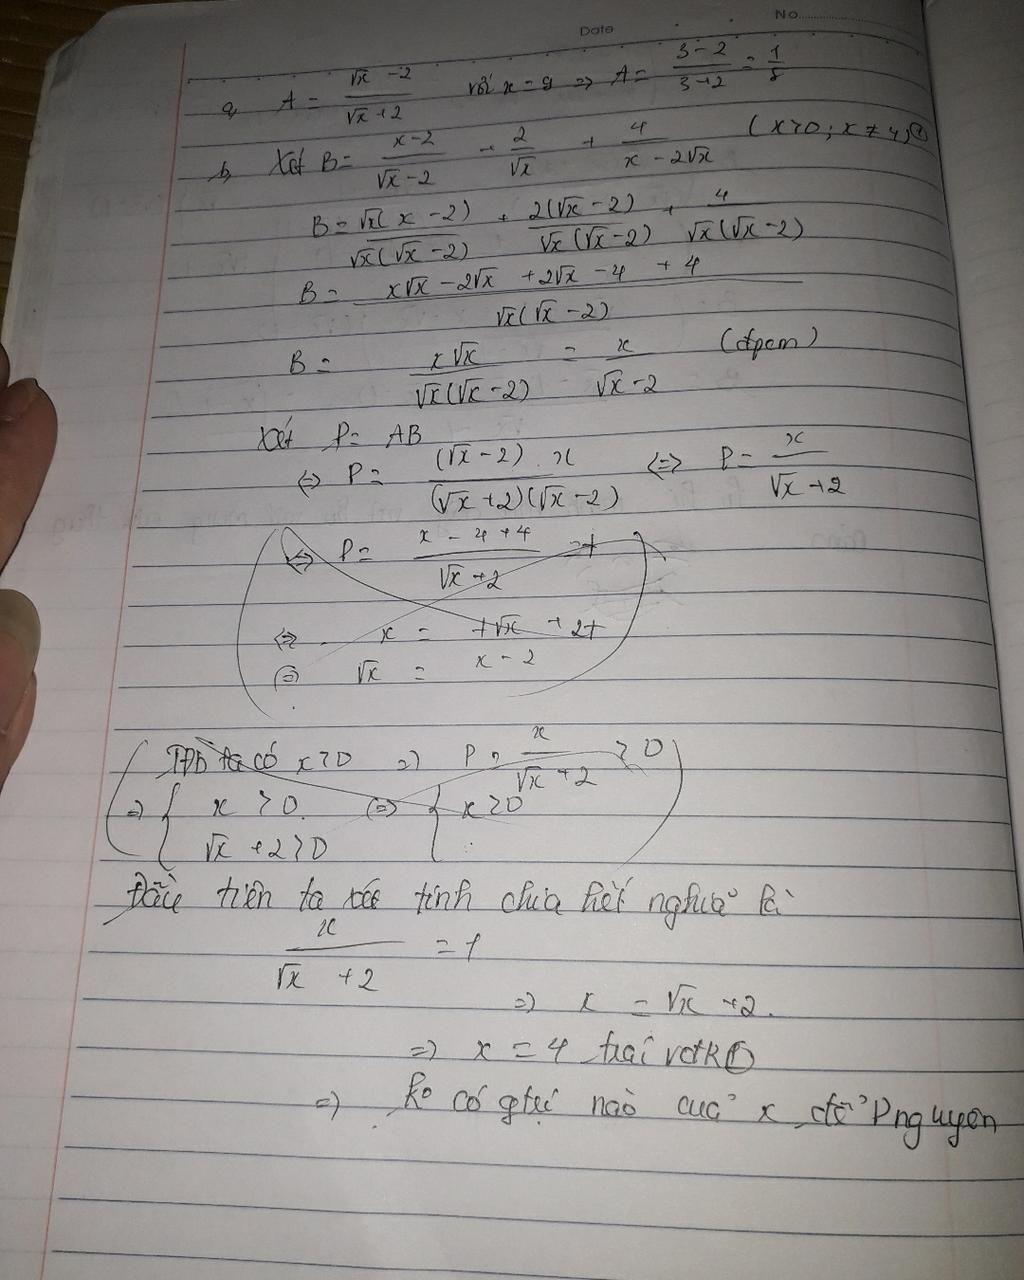 Date No
a, A = (√x - 2)/(√x + 2) với x = 9 => A = (3-2)/(3+2) = 1/5
b, Xét B = (x-2)/(√x-2) + 2/√x + 4/(x-2√x) (x>0; x≠4) ①
B = √x(x-2)/(√x(√x-2)) + 2(√x-2)/(√x(√x-2)) + 4/(√x(√x-2))
B = (x√x - 2√x + 2√x - 4 + 4)/(√x(√x-2))
B = x√x/(√x(√x-2)) = x/(√x-2) (đpcm)
Xét P = AB
<=> P = (√x-2).x/((√x+2)(√x-2)) <=> P = x/(√x+2)
<=> P = (x-4+4)/(√x+2) = t
<=> x = t√x + 2t
<=> √x = x-2
ta có x>0 => P = x/(√x+2) > 0
=> { x > 0 <=> { x>0
√x + 2 > 0
Đầu tiên ta xét tính chia hết nghĩa là
x/(√x + 2) = 1
=> x = √x + 2.
=> x = 4 trái vđk①
=> ko có gtrị nào của x để P nguyên